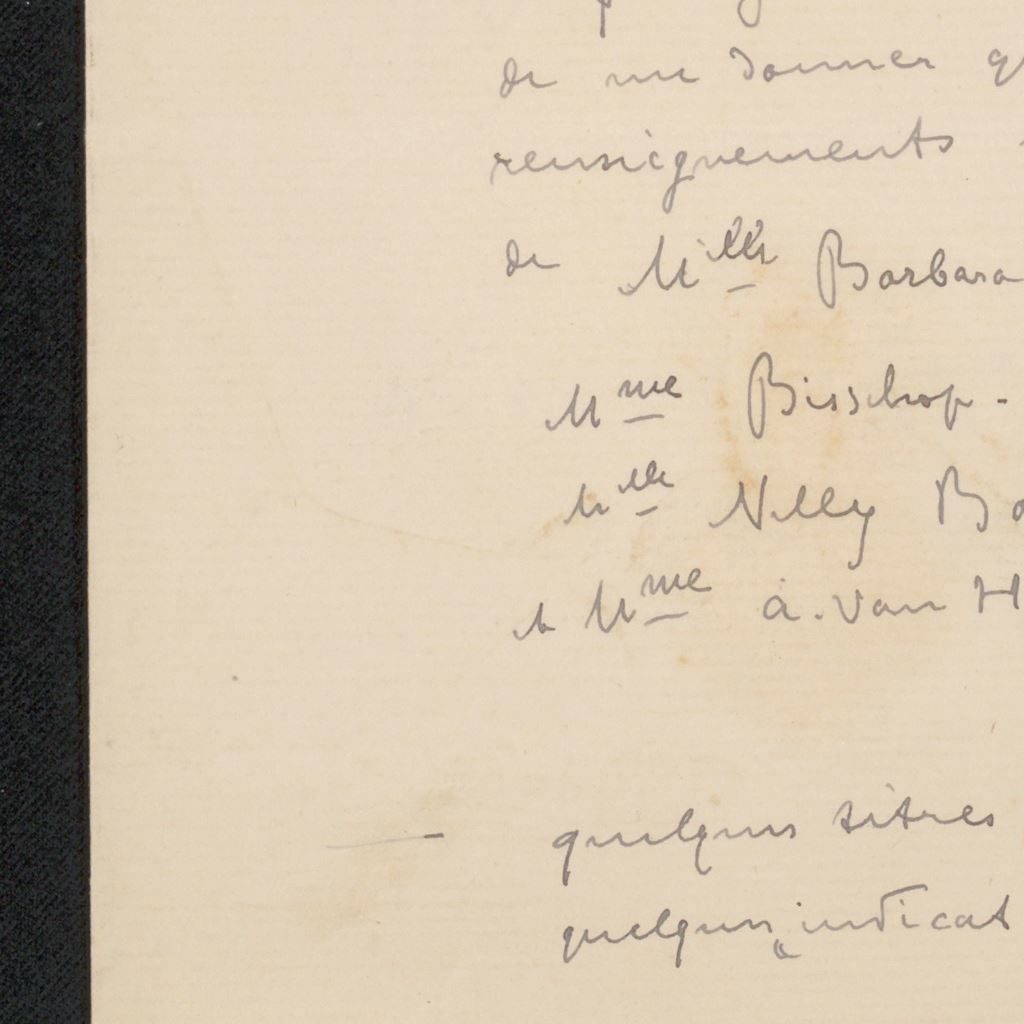 de me donner
renseignements
de Mlle Barbara
Mme Bisschop -
Mlle Nelly
et Mme A. Van
quelques titres
quelques